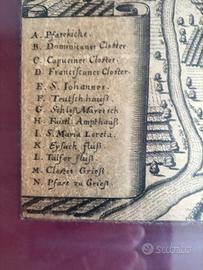 A. Pfarrkirche.
B. Dominicaner Closter
C. Capuciner Closter.
D. Franciscaner Closter.
E. S. Johannes.
F. Teutschhauß.
G. Schloß Maretsch
H. Fürstl. Ampthauß.
I. S. Maria Loreta.
K. Eysack fluß.
L. Talfer fluß.
M. Closter Grieß.
N. Pfarr zu Grieß.
subito